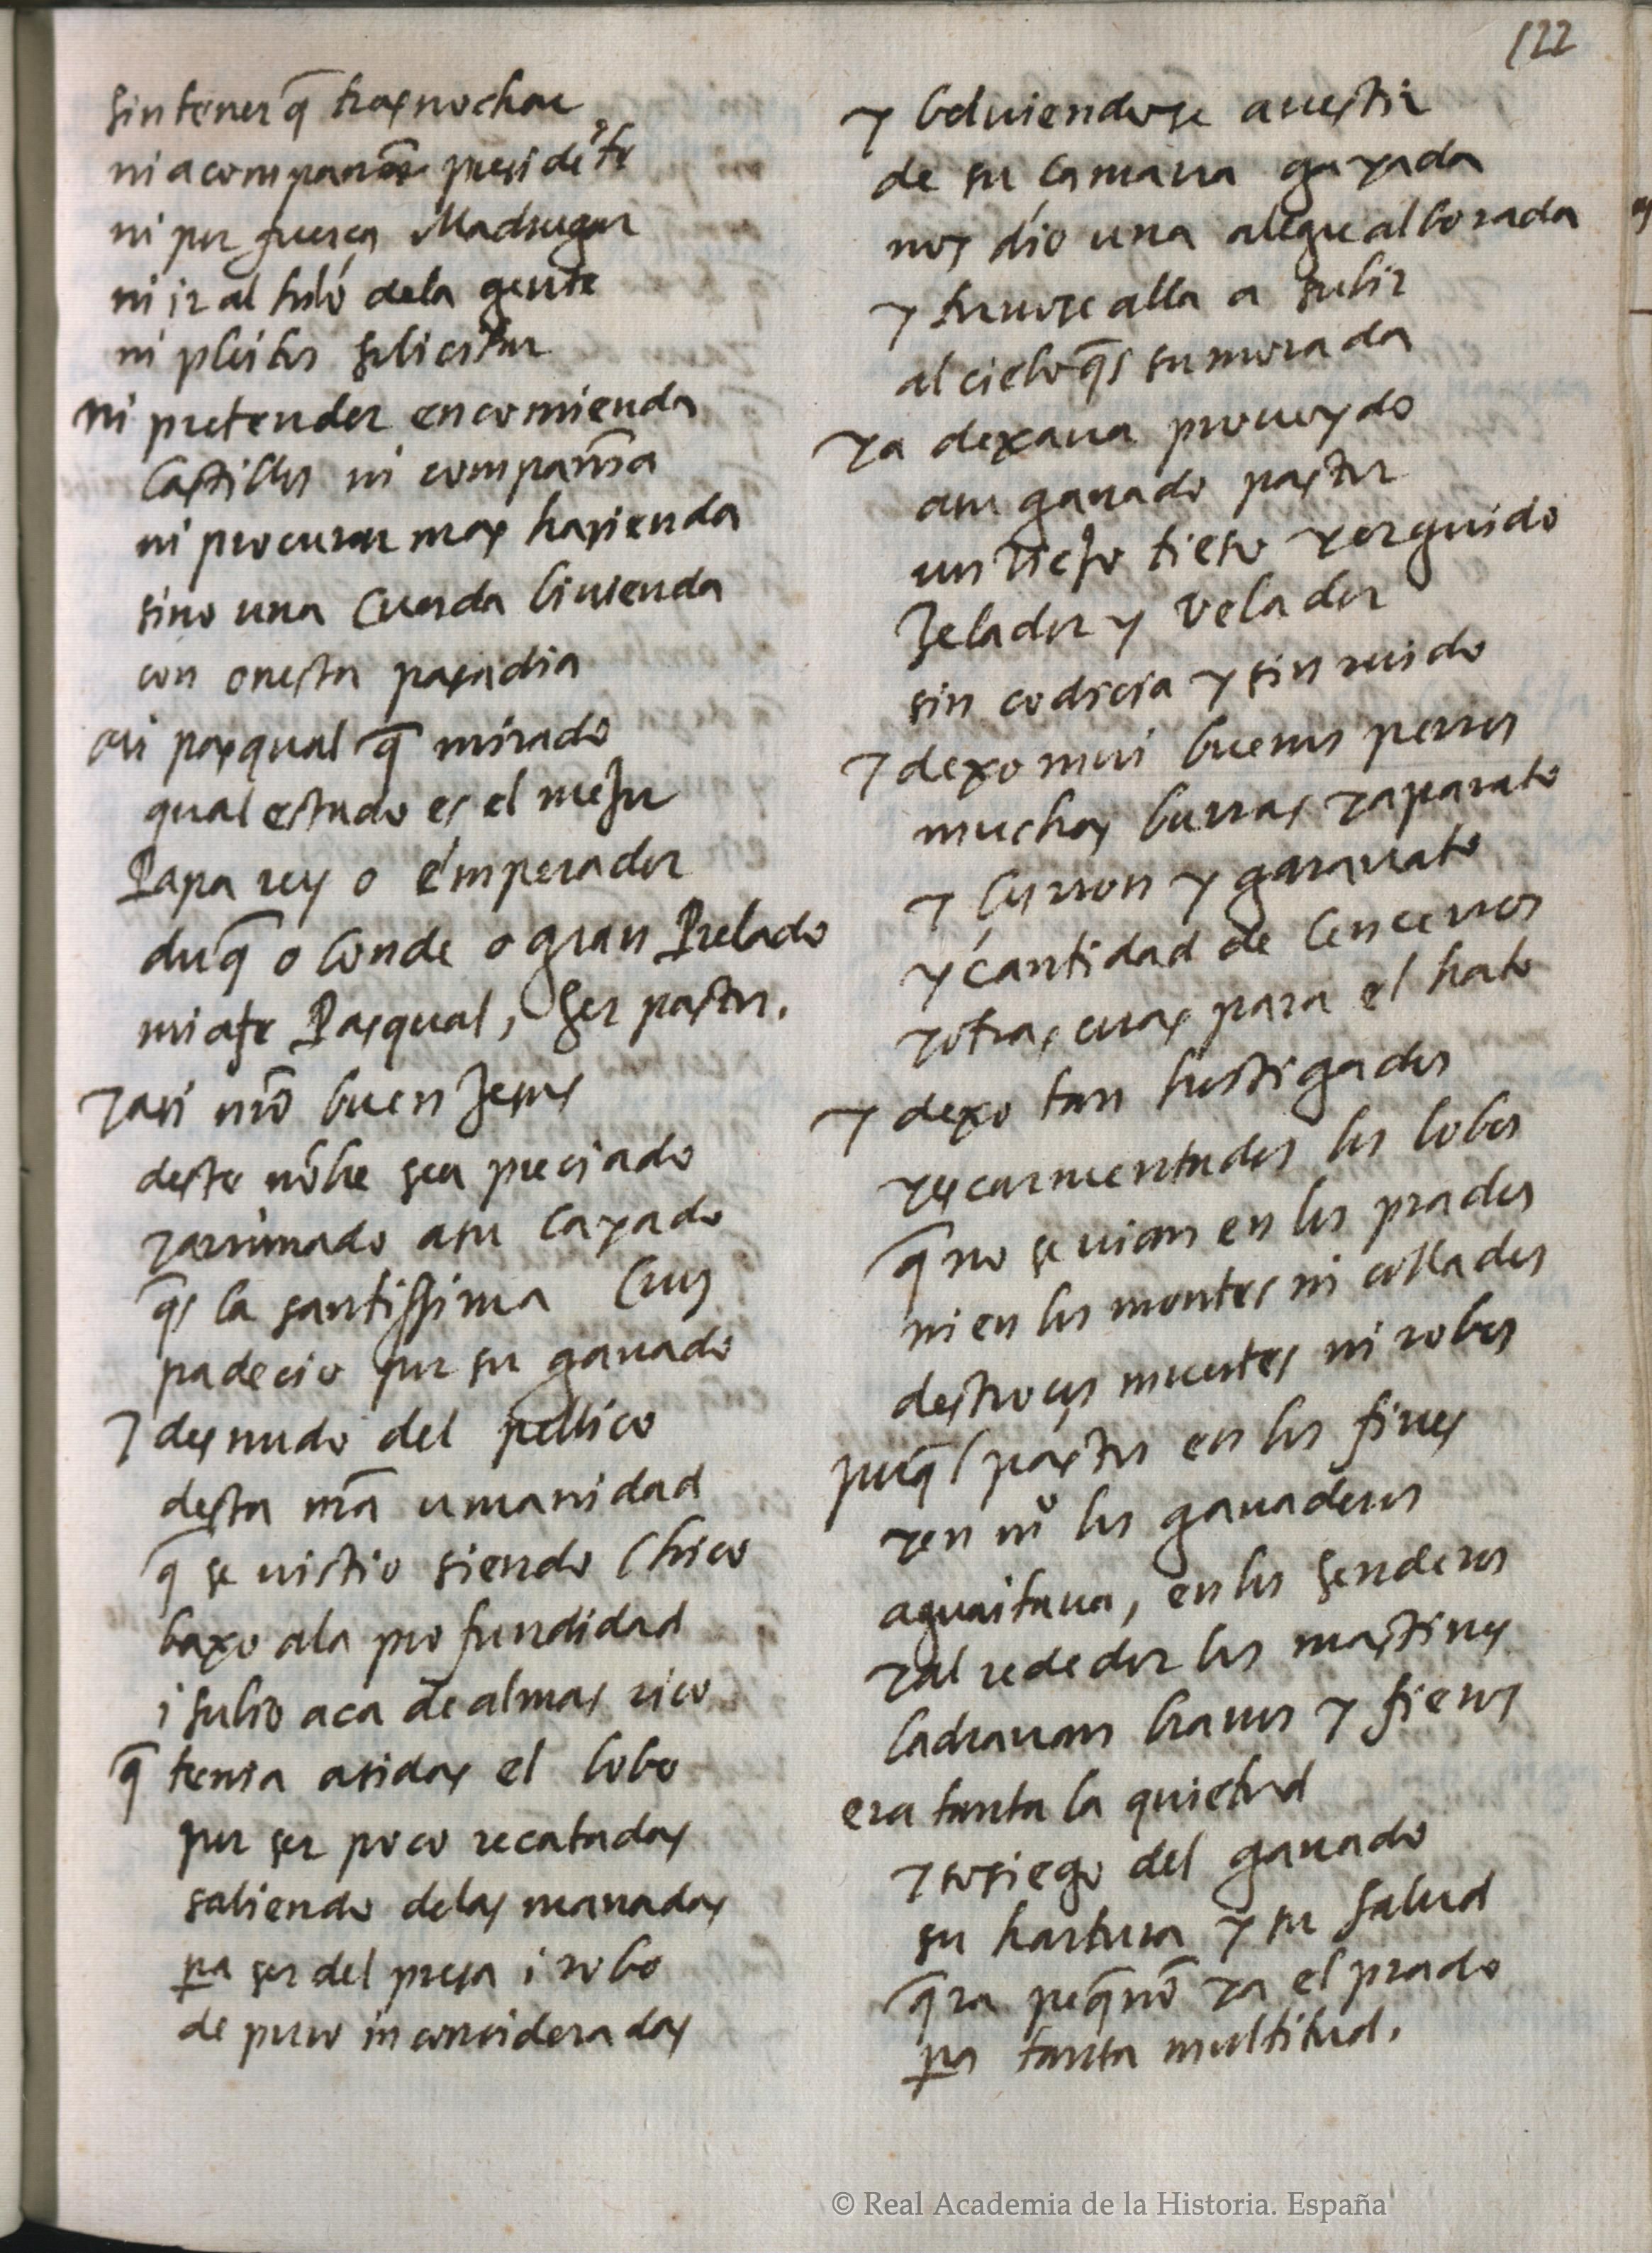 122
sin tener q̃ trasnochar
ni acompañar presidẽte
ni por fuerça Madrugar
ni ir al hilo dela gente
ni pleitos solicitar
ni pretender encomienda
Castillos ni compañia
ni procurar mas hasienda
sino una Cuerda bivienda
con onesta pasadia
asi pasqual q̃ mirado
qual estado es el mejor
Papa rey o emperador
duq̃ o Conde o gran Prelado
miafe Pasqual, Ser pastor.
yasi nr̃o buen Jesus
deste nõbre sea preciado
yarrimado asu Cayado
q̃s la santissima Cruz
padecio por su ganado
y desnudo del pellico
desta nr̃a umanidad
q̃ se uistio siendo Chico
baxo ala profundidad
i subio aca de almas rico
q̃ tenia asidas el lobo
por ser poco recatadas
saliendo delas manadas
pa ser del presa i robo
de puro inconsideradas
y bolviendose auestir
de su Çamarra gayada
nos dio una alegre alborada
y tuuose alla a subir
al cielo q̃s su morada
ya dexaua proueydo
asu ganado pastor
un viejo tieso yerguido
Zelador y velador
sin codicia y sin ruido
y dexo mui buenos perros
muchas burras yaparato
y Çurron y garauato
y cantidad de Cencerros
yotras cosas para el hato
y dexo tan hostigados
yescarmentados los lobos
q̃ no se uian en los prados
ni en los montes ni collados
destroços muertes ni robos
porq̃l pastor en los fines
yen mº los ganaderos
aguaitaua, en los senderos
yal rededor los mastines
ladrauan brauos y fieros
era tanta la quietud
y sosiego del ganado
su hartura y su salud
q̃ra peq̃ño ya el prado
pa tanta multitud.
© Real Academia de la Historia. España